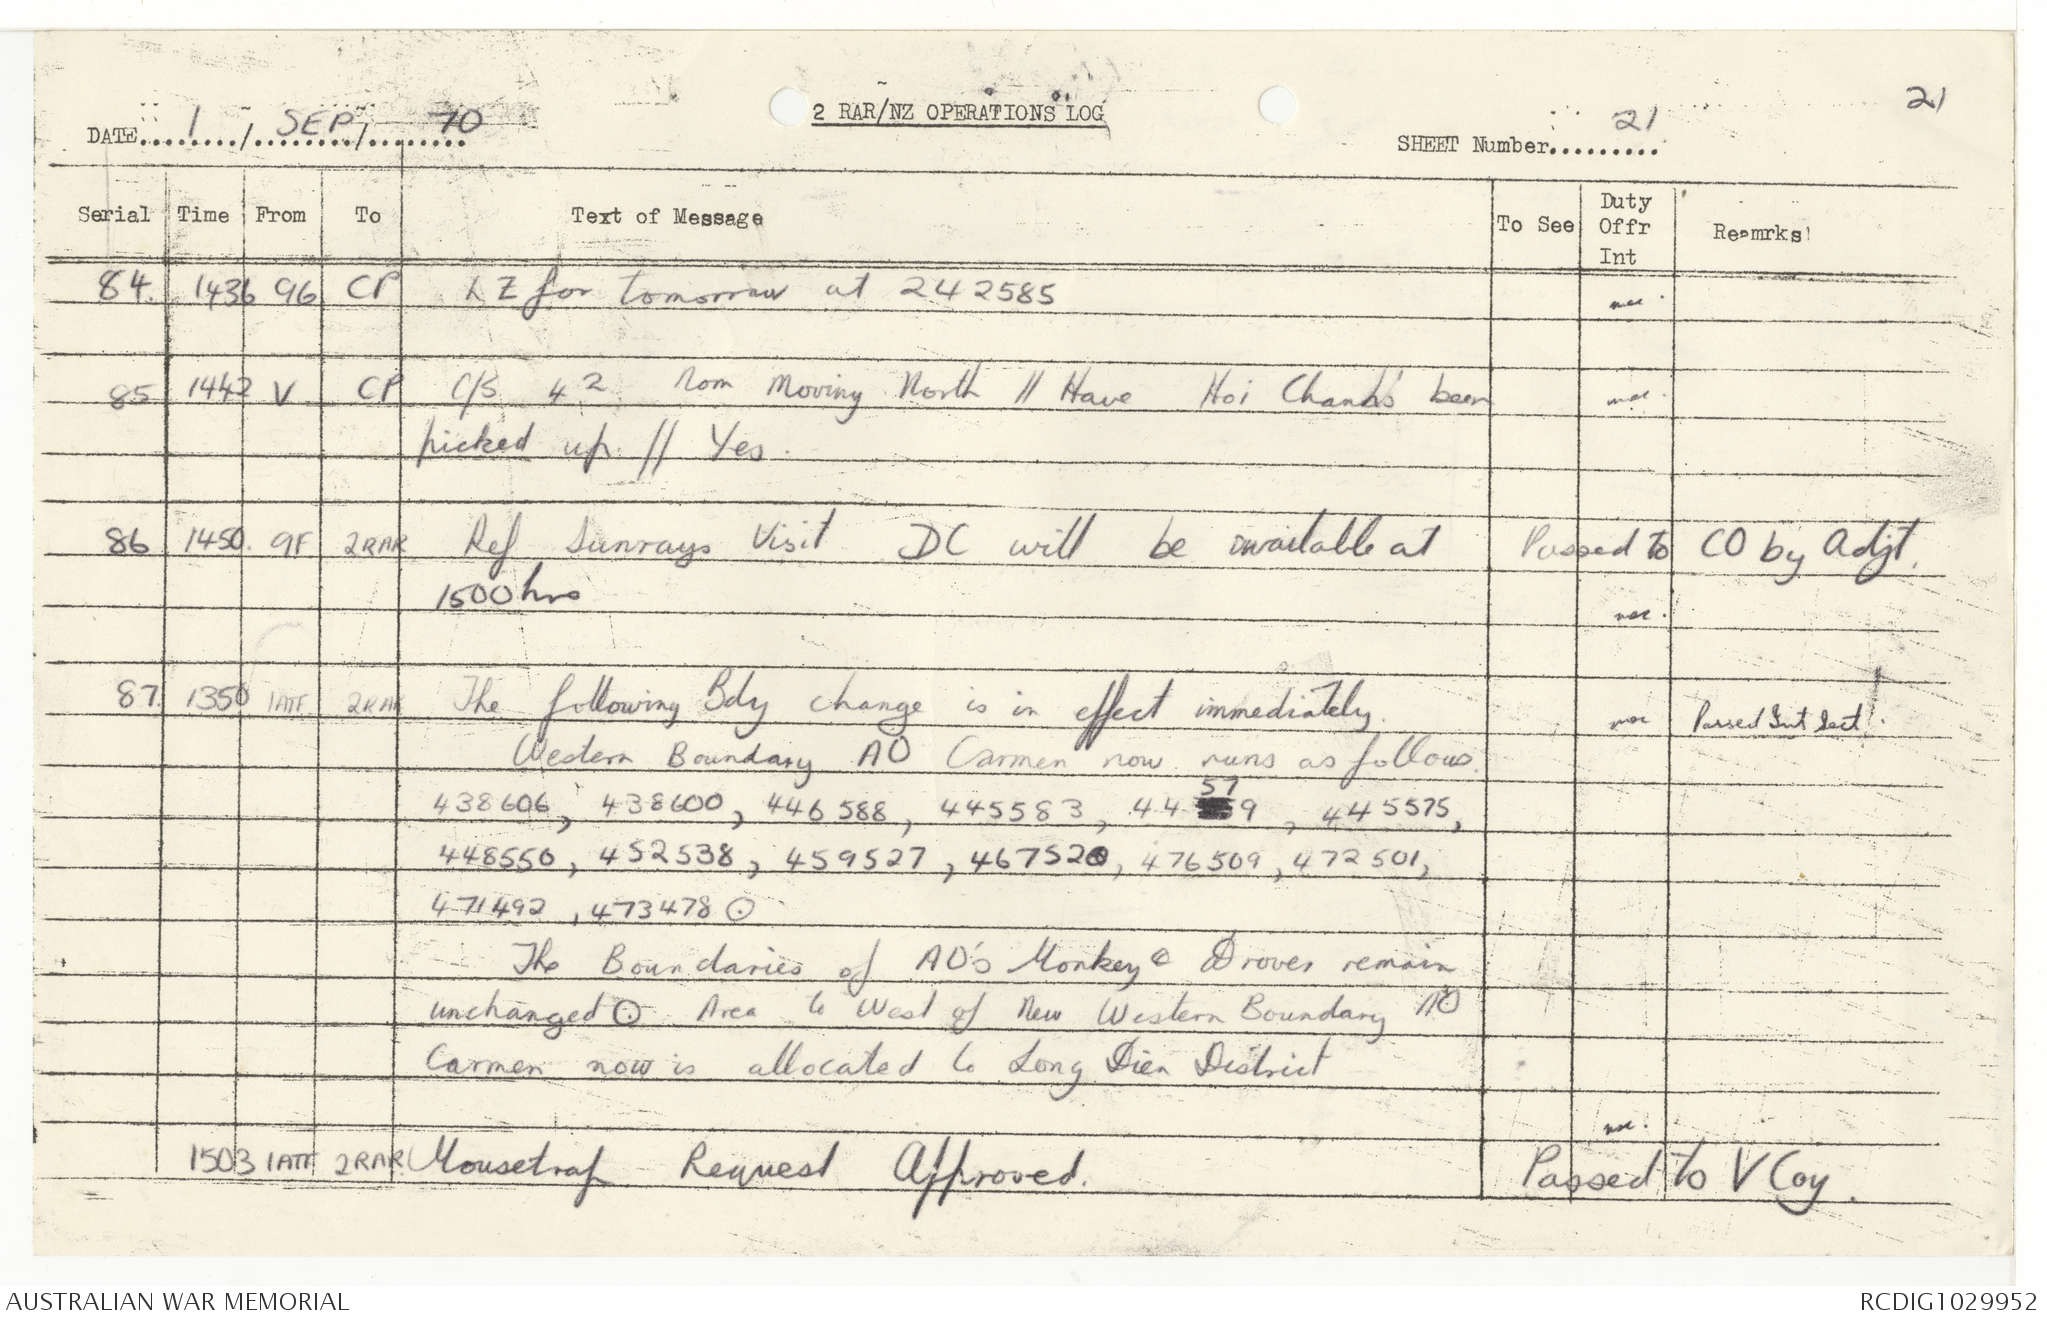 21
2 RAR/NZ OPERATIONS LOG
DATE 1 / SEP / 70
SHEET Number 21
Serial Time From To Text of Message To See Duty Offr Int Reamrks
84. 1436 96 CP LZ for tomorrow at 242585
85 1442 V CP C/S 42 Rom Moving North // Have Hoi Chanh's been
picked up // Yes.
86 1450. 9F 2RAR Ref Sunrays Visit DC will be available at Passed to CO by Adjt.
1500 hrs
87. 1350 1ATF 2RAR The following Bdy change is in effect immediately. Passed Int Sect!
Western Boundary AO Carmen now runs as follows.
57
438606, 438600, 446588, 445583, 44 9, 445575,
448550, 452538, 459527, 467520, 476509, 472501,
471492, 473478 ⊙
The Boundaries of AO's Monkey & Drover remain
unchanged ⊙ Area to West of New Western Boundary AO
Carmen now is allocated to Long Dien District
1503 1ATF 2RAR Mousetrap Request Approved. Passed to V Coy.
AUSTRALIAN WAR MEMORIAL
RCDIG1029952